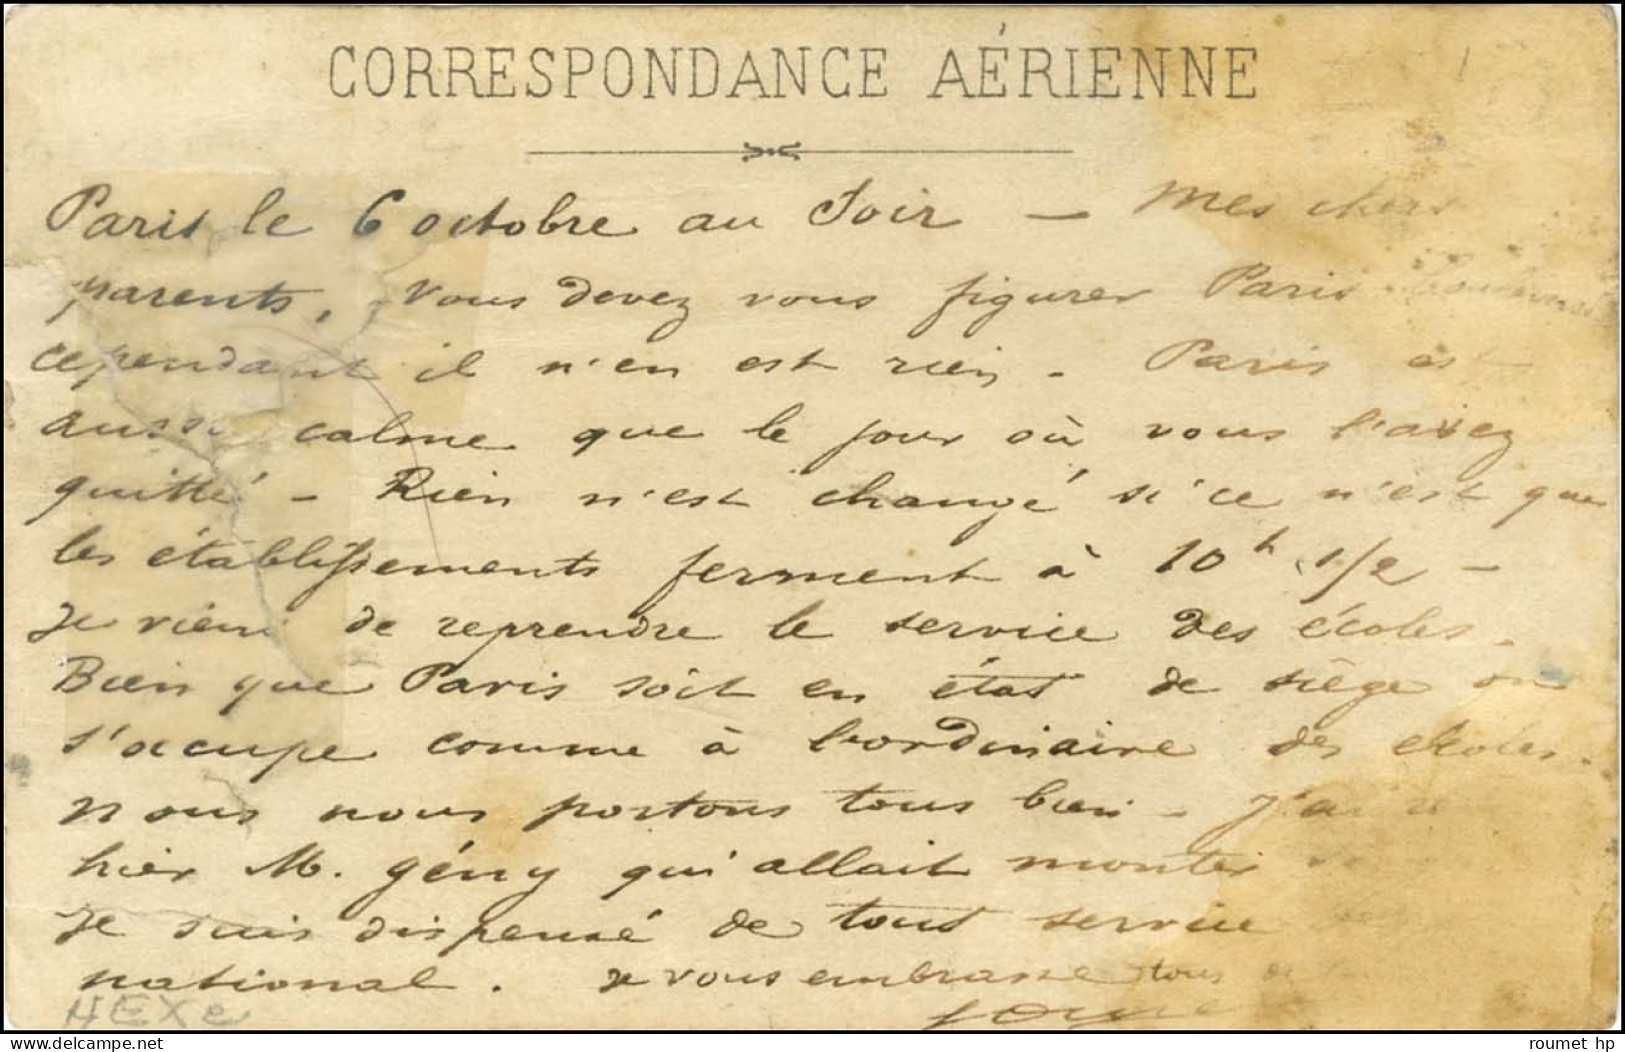 CORRESPONDANCE AÉRIENNE
Paris le 6 octobre au Soir — Mes chers
parents, Vous devez vous figurer Paris
cependant il n'en est rien. Paris est
aussi calme que le jour où vous l'avez
quitté – Rien n'est changé si ce n'est que
les établissements ferment à 10h 1/2 –
Je viens de reprendre le service des écoles.
Bien que Paris soit en état de siège on
s'occupe comme à l'ordinaire des écoles.
Nous nous portons tous bien – J'ai
hier M. Gény qui allait monter
Je suis dispensé de tout service
national. Je vous embrasse tous
HEXe
roumet hp